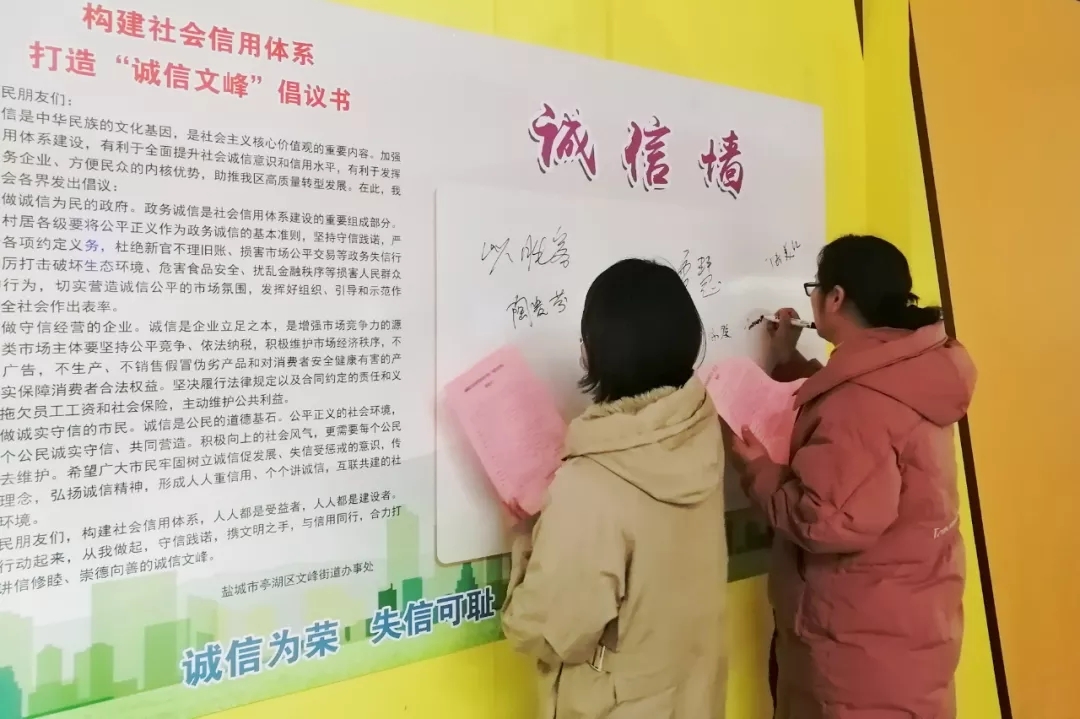 构建社会信用体系
打造“诚信文峰”倡议书
民朋友们：
信是中华民族的文化基因，是社会主义核心价值观的重要内容。加强
用体系建设，有利于全面提升社会诚信意识和信用水平，有利于发挥
务企业、方便民众的内核优势，助推我区高质量转型发展。在此，我
会各界发出倡议：
做诚信为民的政府。政务诚信是社会信用体系建设的重要组成部分。
村居各级要将公平正义作为政务诚信的基本准则，坚持守信践诺，严
各项约定义务，杜绝新官不理旧账、损害市场公平交易等政务失信行
厉打击破坏生态环境、危害食品安全、扰乱金融秩序等损害人民群众
行为，切实营造诚信公平的市场氛围，发挥好组织、引导和示范作
全社会作出表率。
做守信经营的企业。诚信是企业立足之本，是增强市场竞争力的源
类市场主体要坚持公平竞争、依法纳税，积极维护市场经济秩序，不
广告，不生产、不销售假冒伪劣产品和对消费者安全健康有害的产
实保障消费者合法权益。坚决履行法律规定以及合同约定的责任和义
拖欠员工工资和社会保险，主动维护公共利益。
做诚实守信的市民。诚信是公民的道德基石。公平正义的社会环境，
个公民诚实守信、共同营造。积极向上的社会风气，更需要每个公民
去维护。希望广大市民牢固树立诚信促发展、失信受惩戒的意识，传
理念，弘扬诚信精神，形成人人重信用、个个讲诚信，互联共建的社
环境。
民朋友们，构建社会信用体系，人人都是受益者，人人都是建设者。
行动起来，从我做起，守信践诺，携文明之手，与信用同行，合力打
讲信修睦、崇德向善的诚信文峰。
盐城市亭湖区文峰街道办事处
诚信为荣 失信可耻
诚信墙